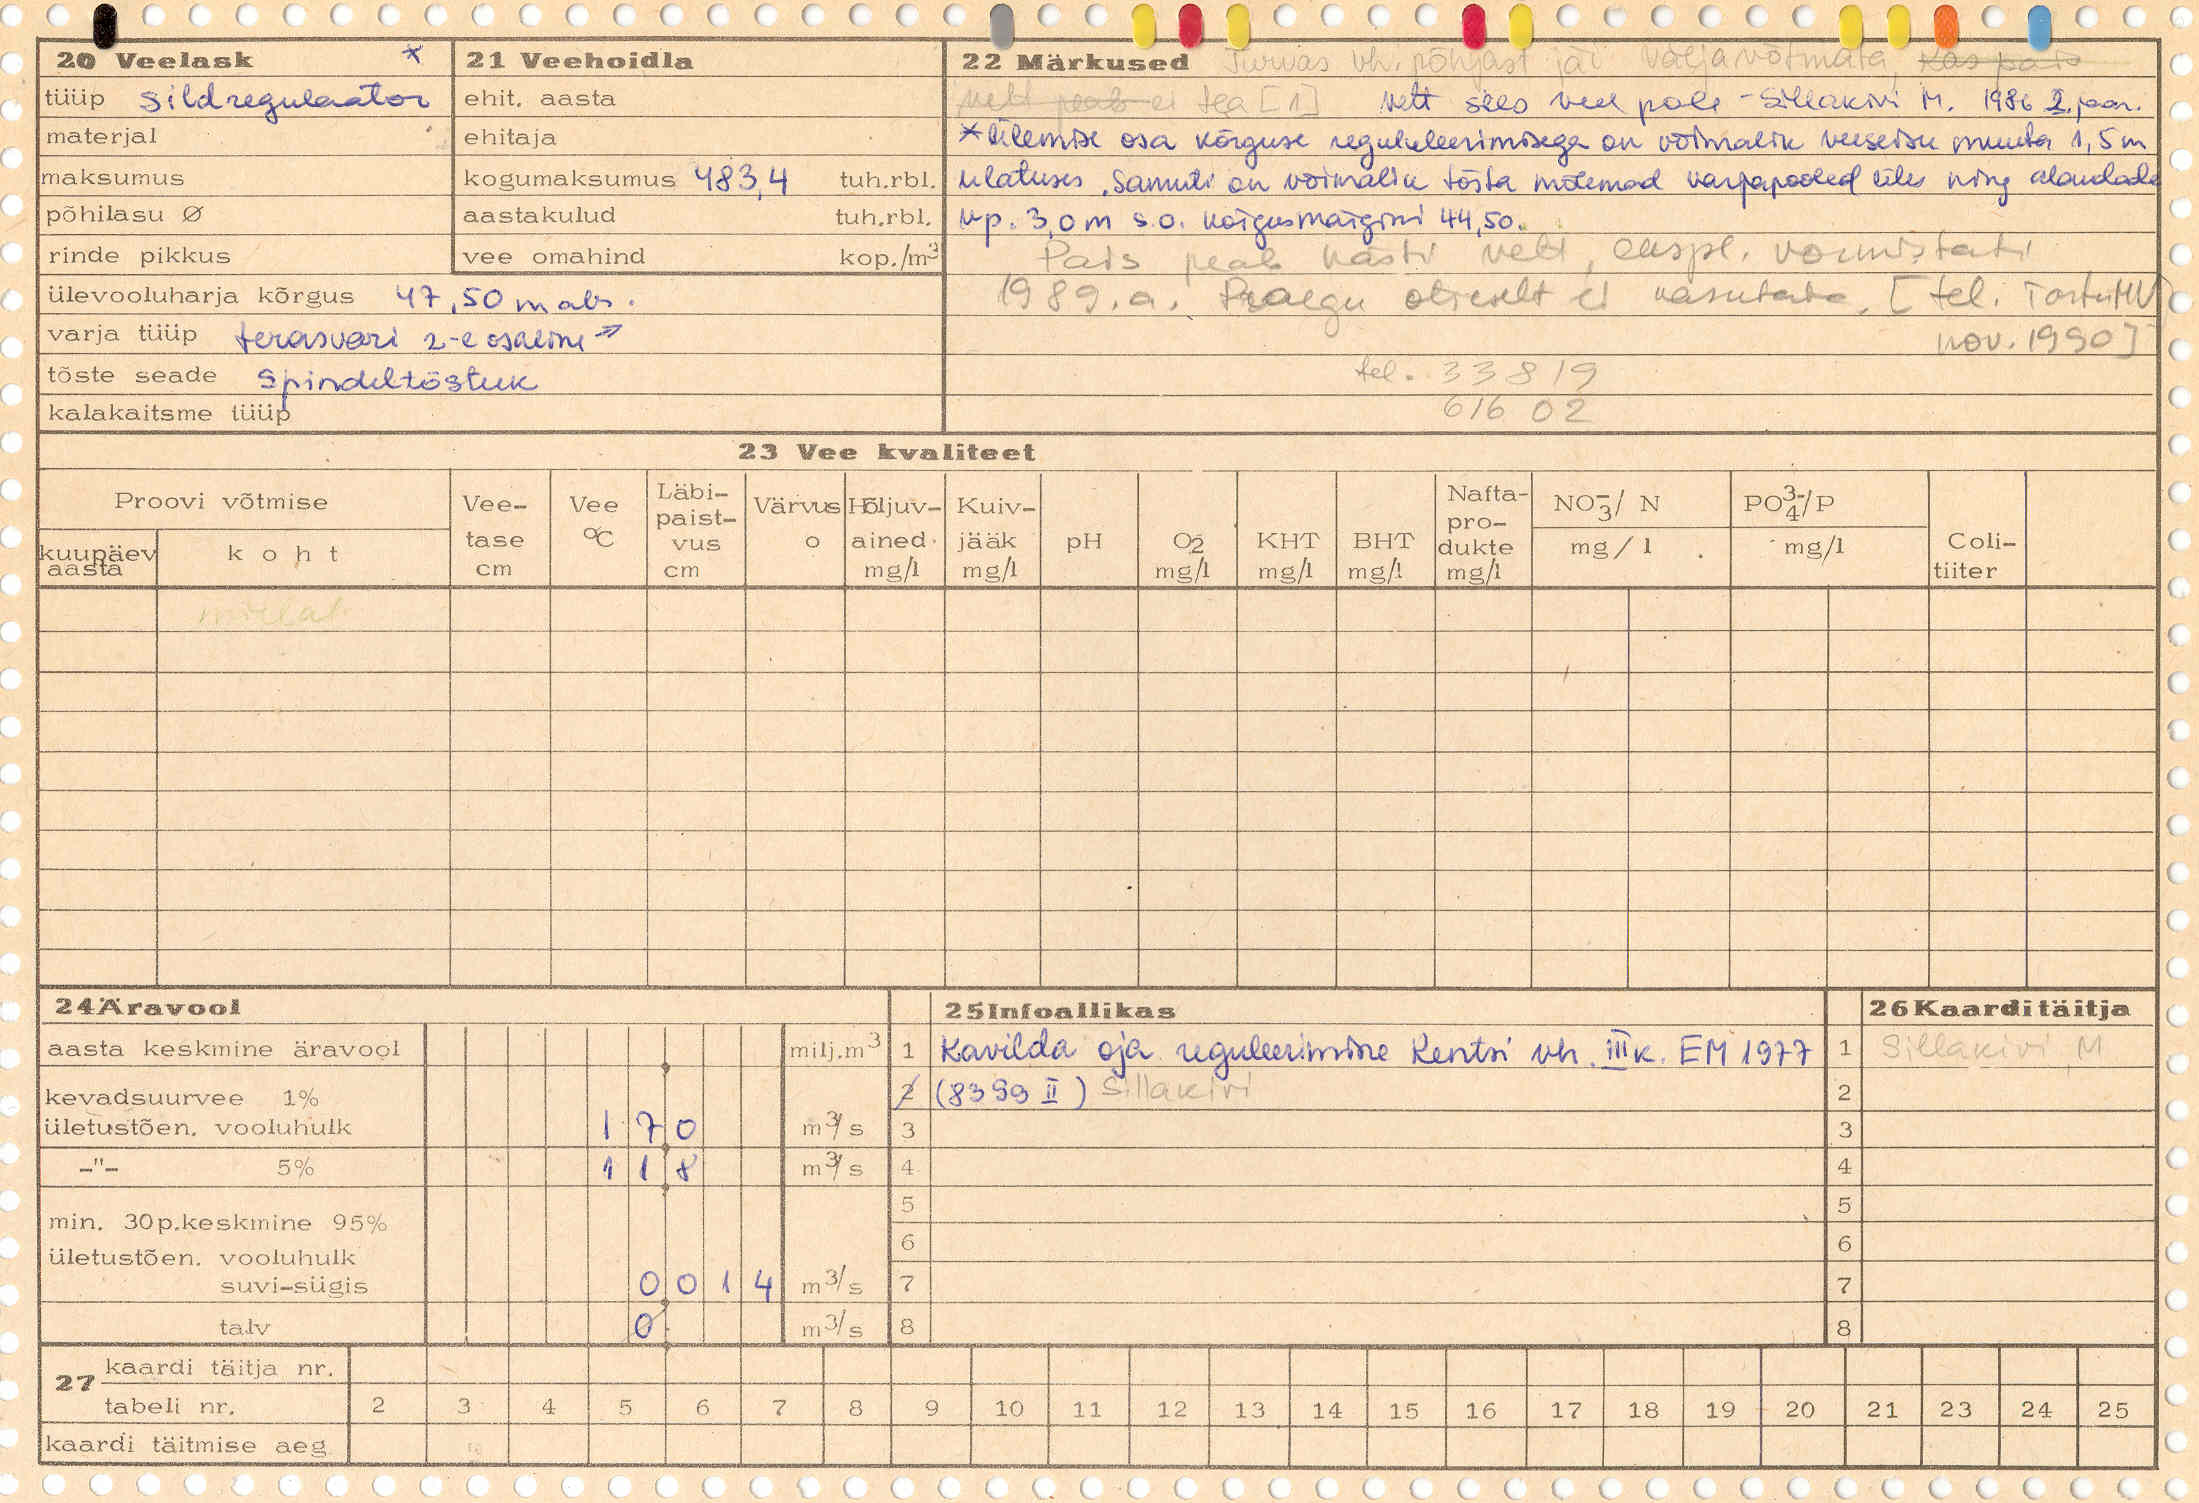 20 Veelask *
tüüp sildregulaator
materjal
maksumus
põhilasu Ø
rinde pikkus
ülevooluharja kõrgus 47,50 m abs.
varja tüüp terasvari 2-e osaline
tõste seade spindeltõstuk
kalakaitsme tüüp
21 Veehoidla
ehit. aasta
ehitaja
kogumaksumus 483,4 tuh.rbl.
aastakulud tuh.rbl.
vee omahind kop./m³
22 Märkused Turvas vh. põhjast jäi väljavõtmata, kas pais
vett peab ei tea [1] Vett sees veel pole - Sillakivi M. 1986 2. jaan.
* Ülemise osa kõrguse reguleerimisega on võimalik veeseisu muuta 1,5 m
ulatuses. Samuti on võimalik tõsta mõlemad varjapooled üles ning alandada
vp. 3,0 m s.o. kõrgusmärgini 44,50.
Pais peab hästi vett, ekspl. vormistati
1989.a. Praegu otseselt ei kasutata. [tel. Tartu MV
nov. 1990]
tel. 33819
616 02
23 Vee kvaliteet
Proovi võtmise
kuupäev aasta
koht
Vee-tase cm
Vee °C
Läbi-paist-vus cm
Värvus o
Hõljuv-ained mg/l
Kuiv-jääk mg/l
pH
O2 mg/l
KHT mg/l
BHT mg/l
Nafta-pro-dukte mg/l
NO3⁻/ N mg/l
PO4³⁻/P mg/l
Coli-tiiter
24 Äravool
aasta keskmine äravool milj.m³
kevadsuurvee 1%
ületustõen. vooluhulk 1 7 0 m³/s
-"- 5% 1 1 8 m³/s
min. 30p.keskmine 95%
ületustõen. vooluhulk
suvi-sügis 0 0 1 4 m³/s
talv 0 m³/s
25 Infoallikas
1 Kavilda oja reguleerimine Kentsi vh. III k. EM 1977
2 (8399 II) Sillakivi
3
4
5
6
7
8
26 Kaarditäitja
1 Sillakivi M
2
3
4
5
6
7
8
27 kaardi täitja nr.
tabeli nr. 2 3 4 5 6 7 8 9 10 11 12 13 14 15 16 17 18 19 20 21 23 24 25
kaardi täitmise aeg